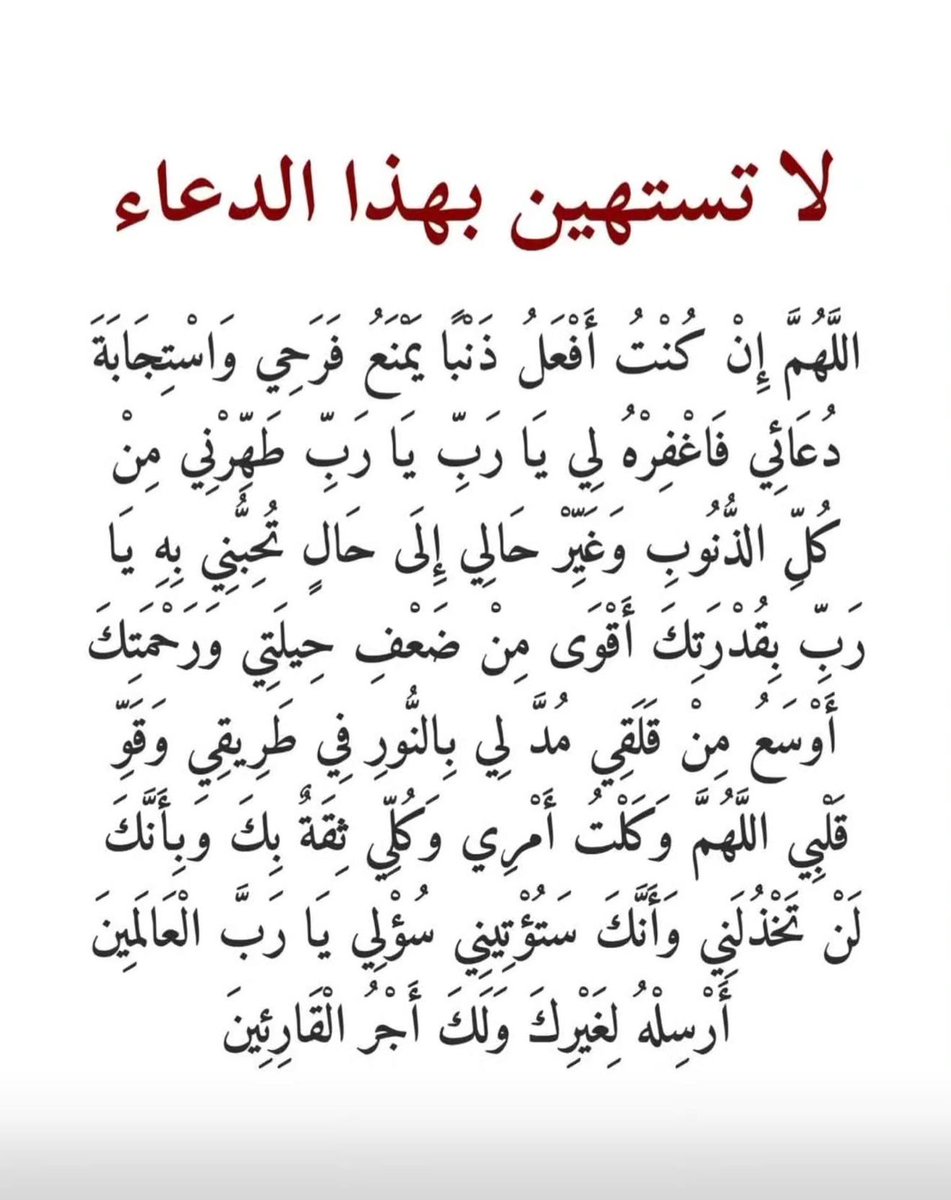 لا تستهين بهذا الدعاء
اللَّهُمَّ إِنْ كُنْتُ أَفْعَلُ ذَنْبًا يَمْنَعُ فَرَحِي وَاسْتِجَابَةَ
دُعَائِي فَاغْفِرْهُ لِي يَا رَبِّ يَا رَبِّ طَهِّرْنِي مِنْ
كُلِّ الذُّنُوبِ وَغَيِّرْ حَالِي إِلَى حَالٍ تُحِبُّنِي بِهِ يَا
رَبِّ بِقُدْرَتِكَ أَقْوَى مِنْ ضَعْفِ حِيلَتِي وَرَحْمَتِكَ
أَوْسَعُ مِنْ قَلَقِي مُدَّ لِي بِالنُّورِ فِي طَرِيقِي وَقَوِّ
قَلْبِي اللَّهُمَّ وَكَلْتُ أَمْرِي وَكُلِّي ثِقَةٌ بِكَ وَبِأَنَّكَ
لَنْ تَخْذُلَنِي وَأَنَّكَ سَتُؤْتِينِي سُؤْلِي يَا رَبَّ الْعَالَمِينَ
أَرْسِلْهُ لِغَيْرِكَ وَلَكَ أَجْرُ الْقَارِئِينَ